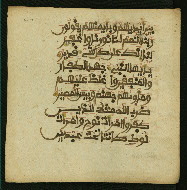 بين ايديهم وبايمنهم يقولون
ربنا اتمم لنا نورنا واغفر
لنا انك على كل شيء قدير
يايها النبي جهد الكفار
والمنفقين واغلظ عليهم
وماويهم جهنم وبيس المصير
ضرب الله مثلا للذين
كفروا امرات نوح وامرات
لوط كانتا تحت عبدين